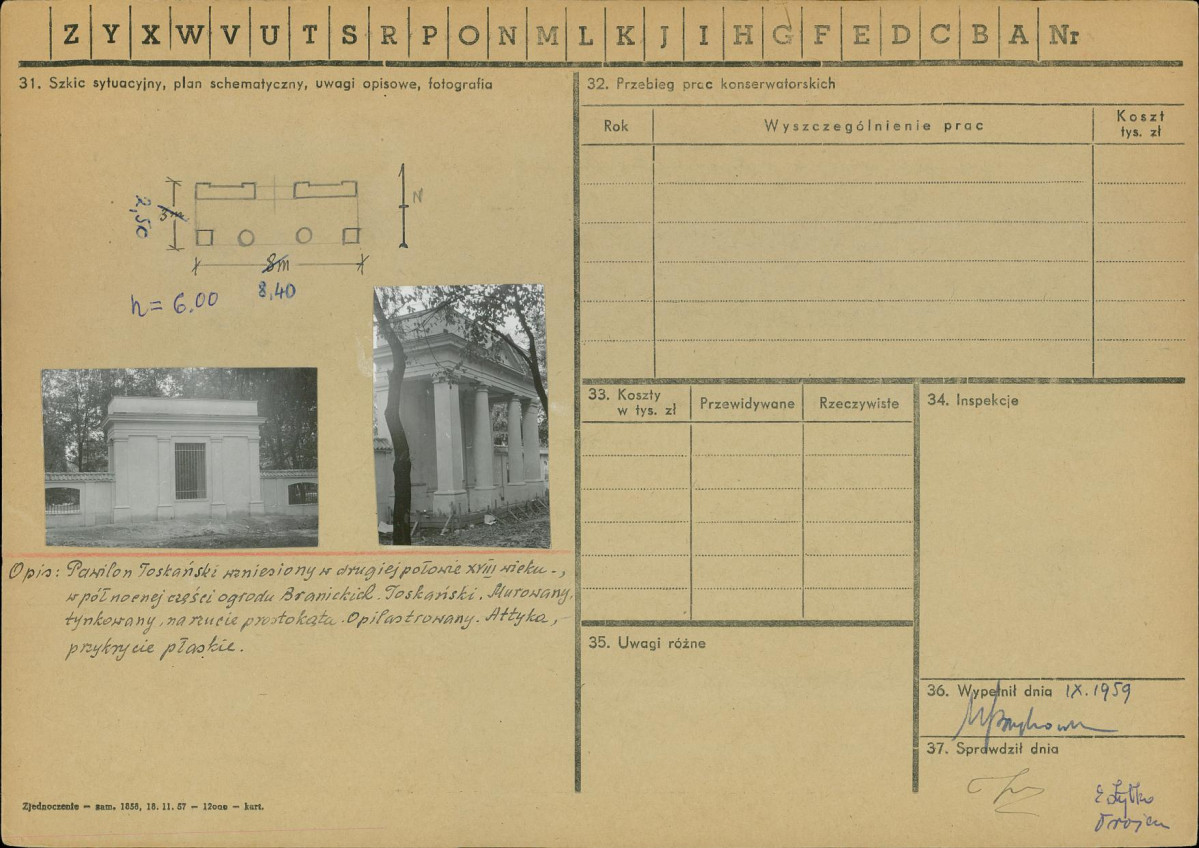 Z Y X W V U T S R P O N M L K J I H G F E D C B A Nr
31. Szkic sytuacyjny, plan schematyczny, uwagi opisowe, fotografia
N
2,50
3m
8m
8,40
h = 6,00
Opis: Pawilon Toskański wzniesiony w drugiej połowie XVIII wieku.,
w północnej części ogrodu Branickich. Toskański. Murowany,
tynkowany, na rzucie prostokąta. Opilastrowany. Attyka,
przykrycie płaskie.
Zjednoczenie — zam. 1858, 18.11.57 — 12000 — kart.
32. Przebieg prac konserwatorskich
Rok
Wyszczególnienie prac
Koszt
tys. zł
33. Koszty
w tys. zł
Przewidywane
Rzeczywiste
34. Inspekcje
35. Uwagi różne
36. Wypełnił dnia IX. 1959
37. Sprawdził dnia